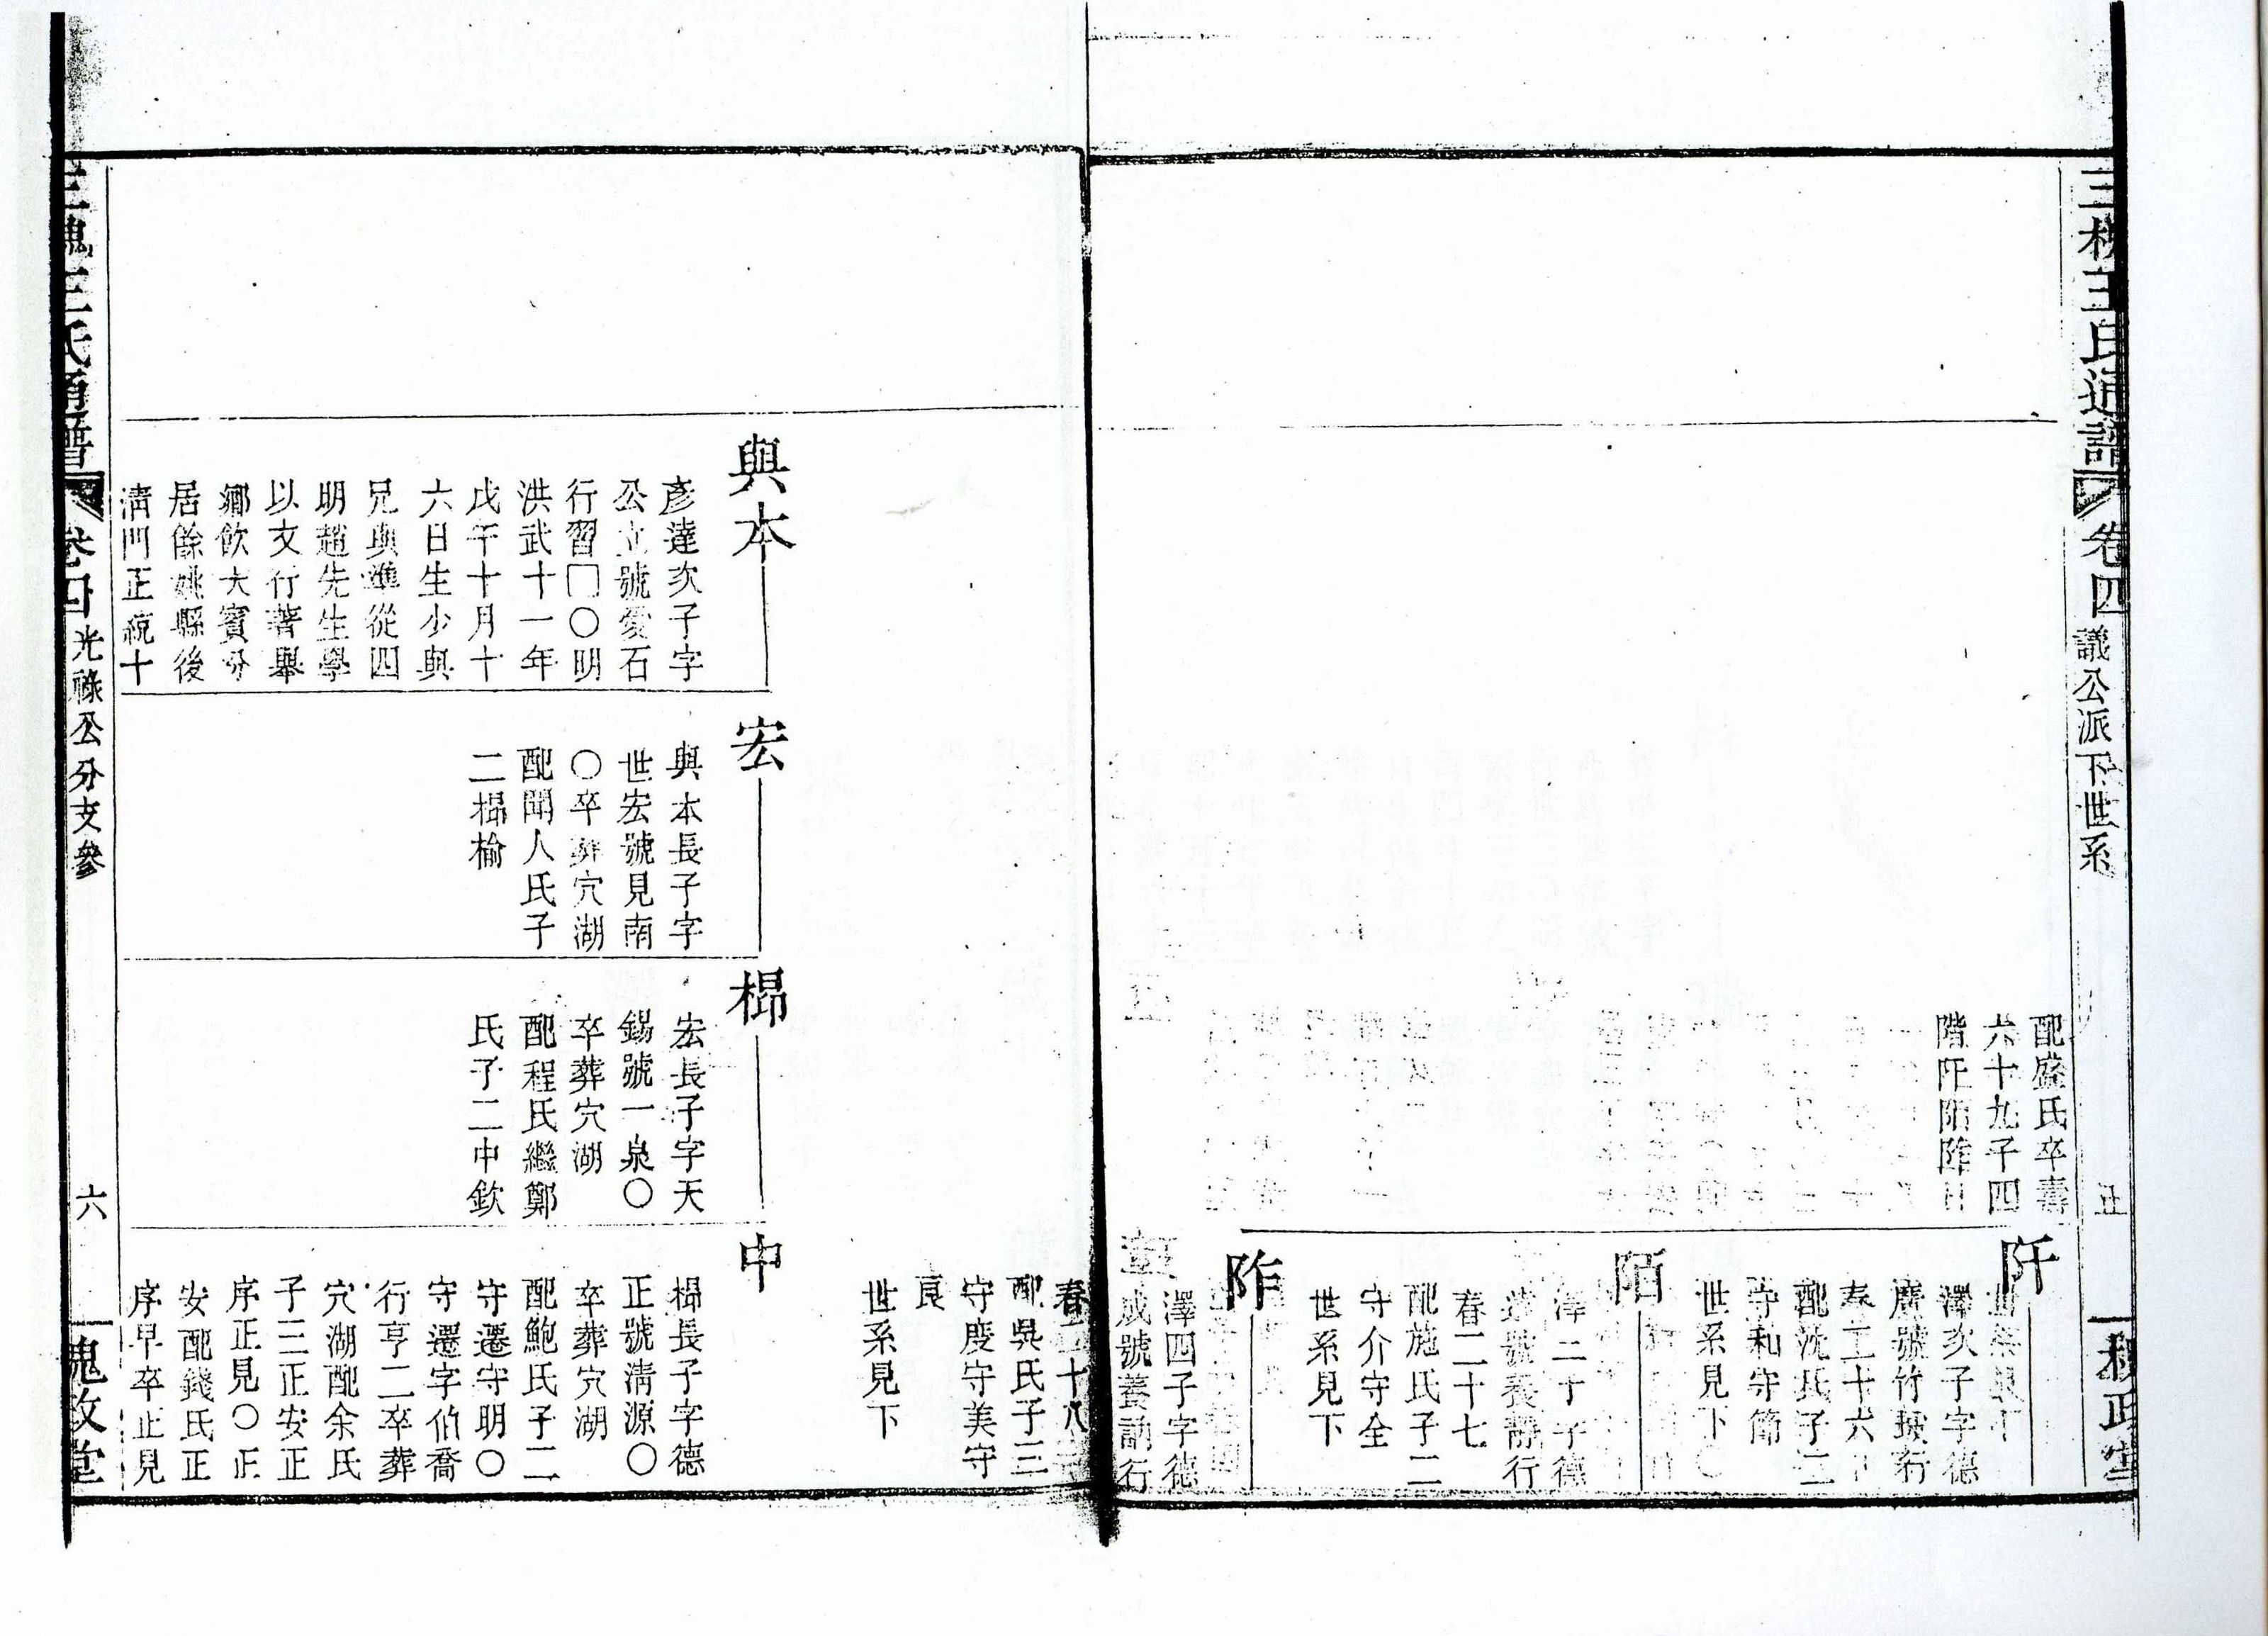 三槐王氏通譜
卷四
議公派下世系
配盛氏卒壽
六十九子四
階阡陌阼
阡
澤次子字德
廣號竹坡行
春二十六
配沈氏子二
守和守節
世系見下〇
陌
澤三子字德
號養靜行
春二十七
配施氏子二
守介守全
世系見下
阼
澤四子字德
成號養訥行
春二十八
配吳氏子三
守慶守美守
良
世系見下
與本
彥達次子字
公立號愛石
行習囗〇明
洪武十一年
戊午十月十
六日生少與
兄與準從四
明趙先生學
以文行著舉
鄉飲大賓分
居餘姚縣後
清門正統十
宏
與本長子字
世宏號見南
〇卒葬穴湖
配聞人氏子
二榻榆
榻
宏長子字天
錫號一泉〇
卒葬穴湖
配程氏繼鄭
氏子二中欽
中
榻長子字德
正號清源〇
卒葬穴湖
配鮑氏子二
守遷守明〇
守遷字伯喬
行亨二卒葬
穴湖配余氏
子三正安正
序正見〇正
安配錢氏正
序早卒正見
三槐王氏通譜
卷四
光祿公分支參
六
槐政堂